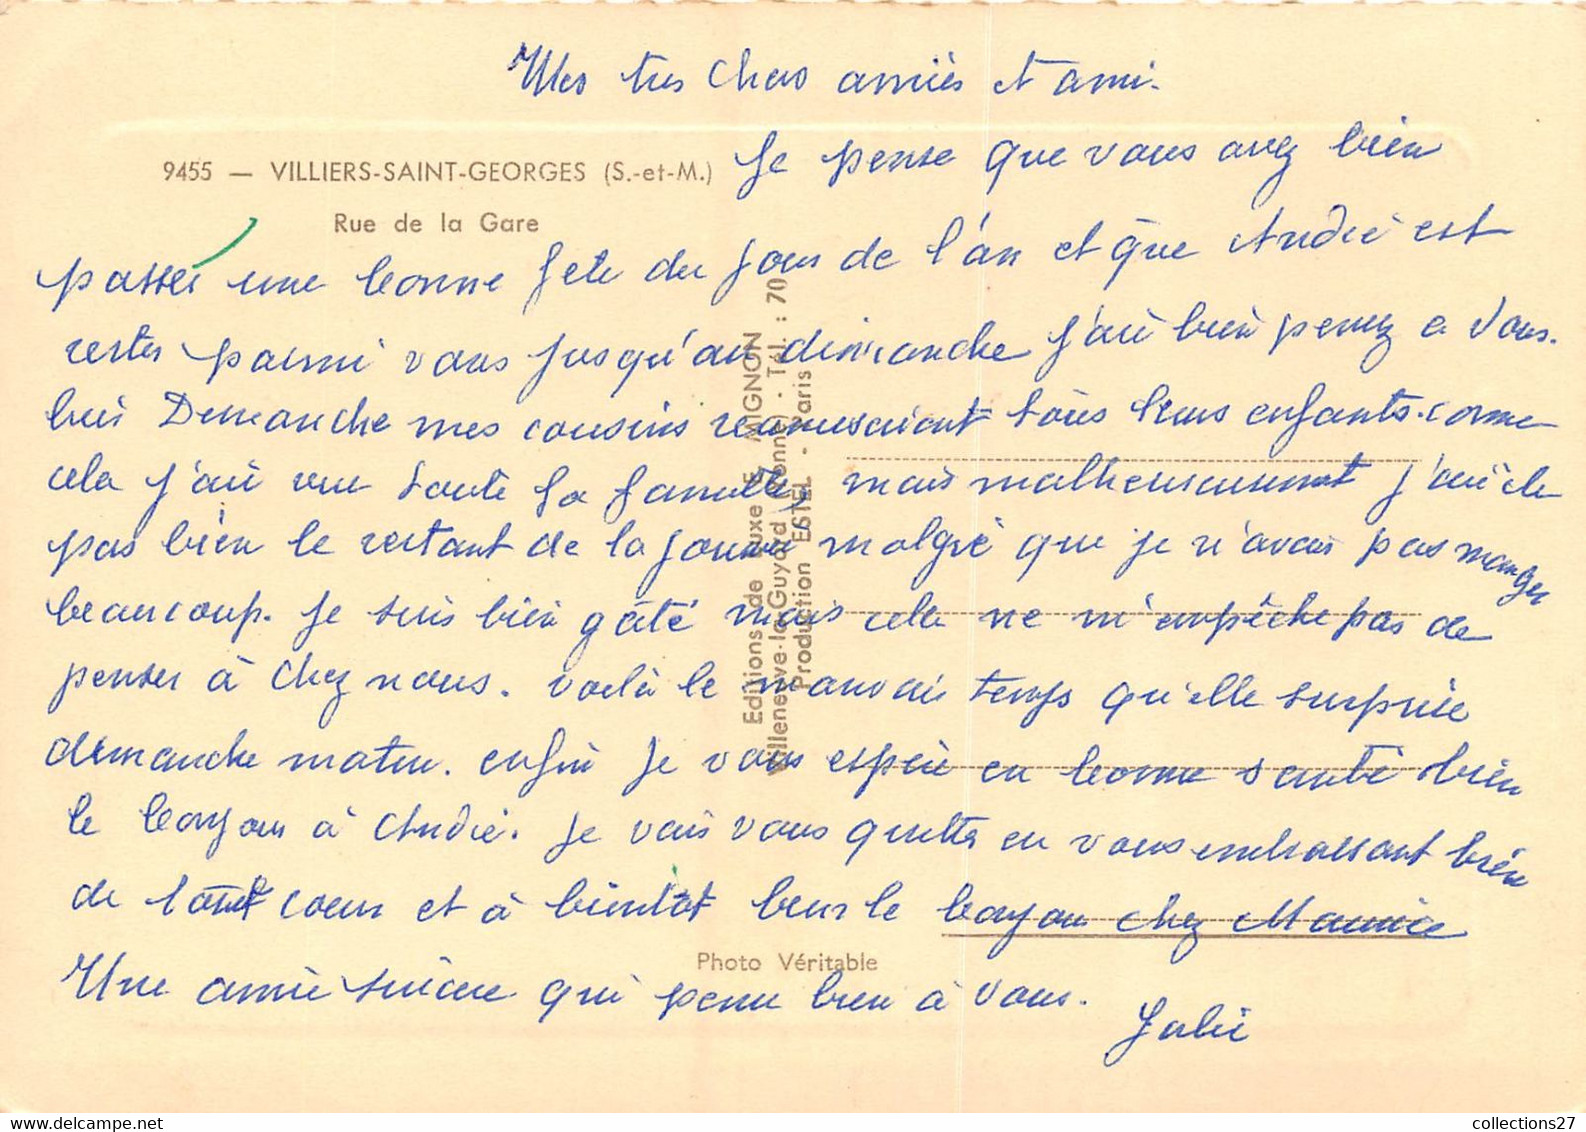 Mes tres chers amies et ami.
9455 — VILLIERS-SAINT-GEORGES (S.-et-M.)
Rue de la Gare
Je pense que vous avez bien
passer une bonne fete du jour de l'an et que André est
rester parmi vous jusqu'au dimanche j'ai bien penser a vous.
Dimanche mes cousins réunissaient tous leurs enfants. comme
cela j'ai vue toute la famille, mais malheureusement j'ai été
pas bien le restant de la journé malgré que je n'avais pas manger
beaucoup. Je suis bien gâté mais cela ne m'empêche pas de
penser à chez nous. voilà le mauvais temps qu'elle surprise
dimanche matin. enfin je vous espère en bonne santé bien
le bonjour à André. Je vais vous quitter en vous embrassant bien
de tout coeur et à bientôt le bonjour chez Maurice
Une amie sincère qui pense bien à vous.
Editions de Luxe E. MIGNON
Villeneuve-la-Guyard (Yonne) - Tél. : 70
Production ESTEL - Paris
Photo Véritable
collections27